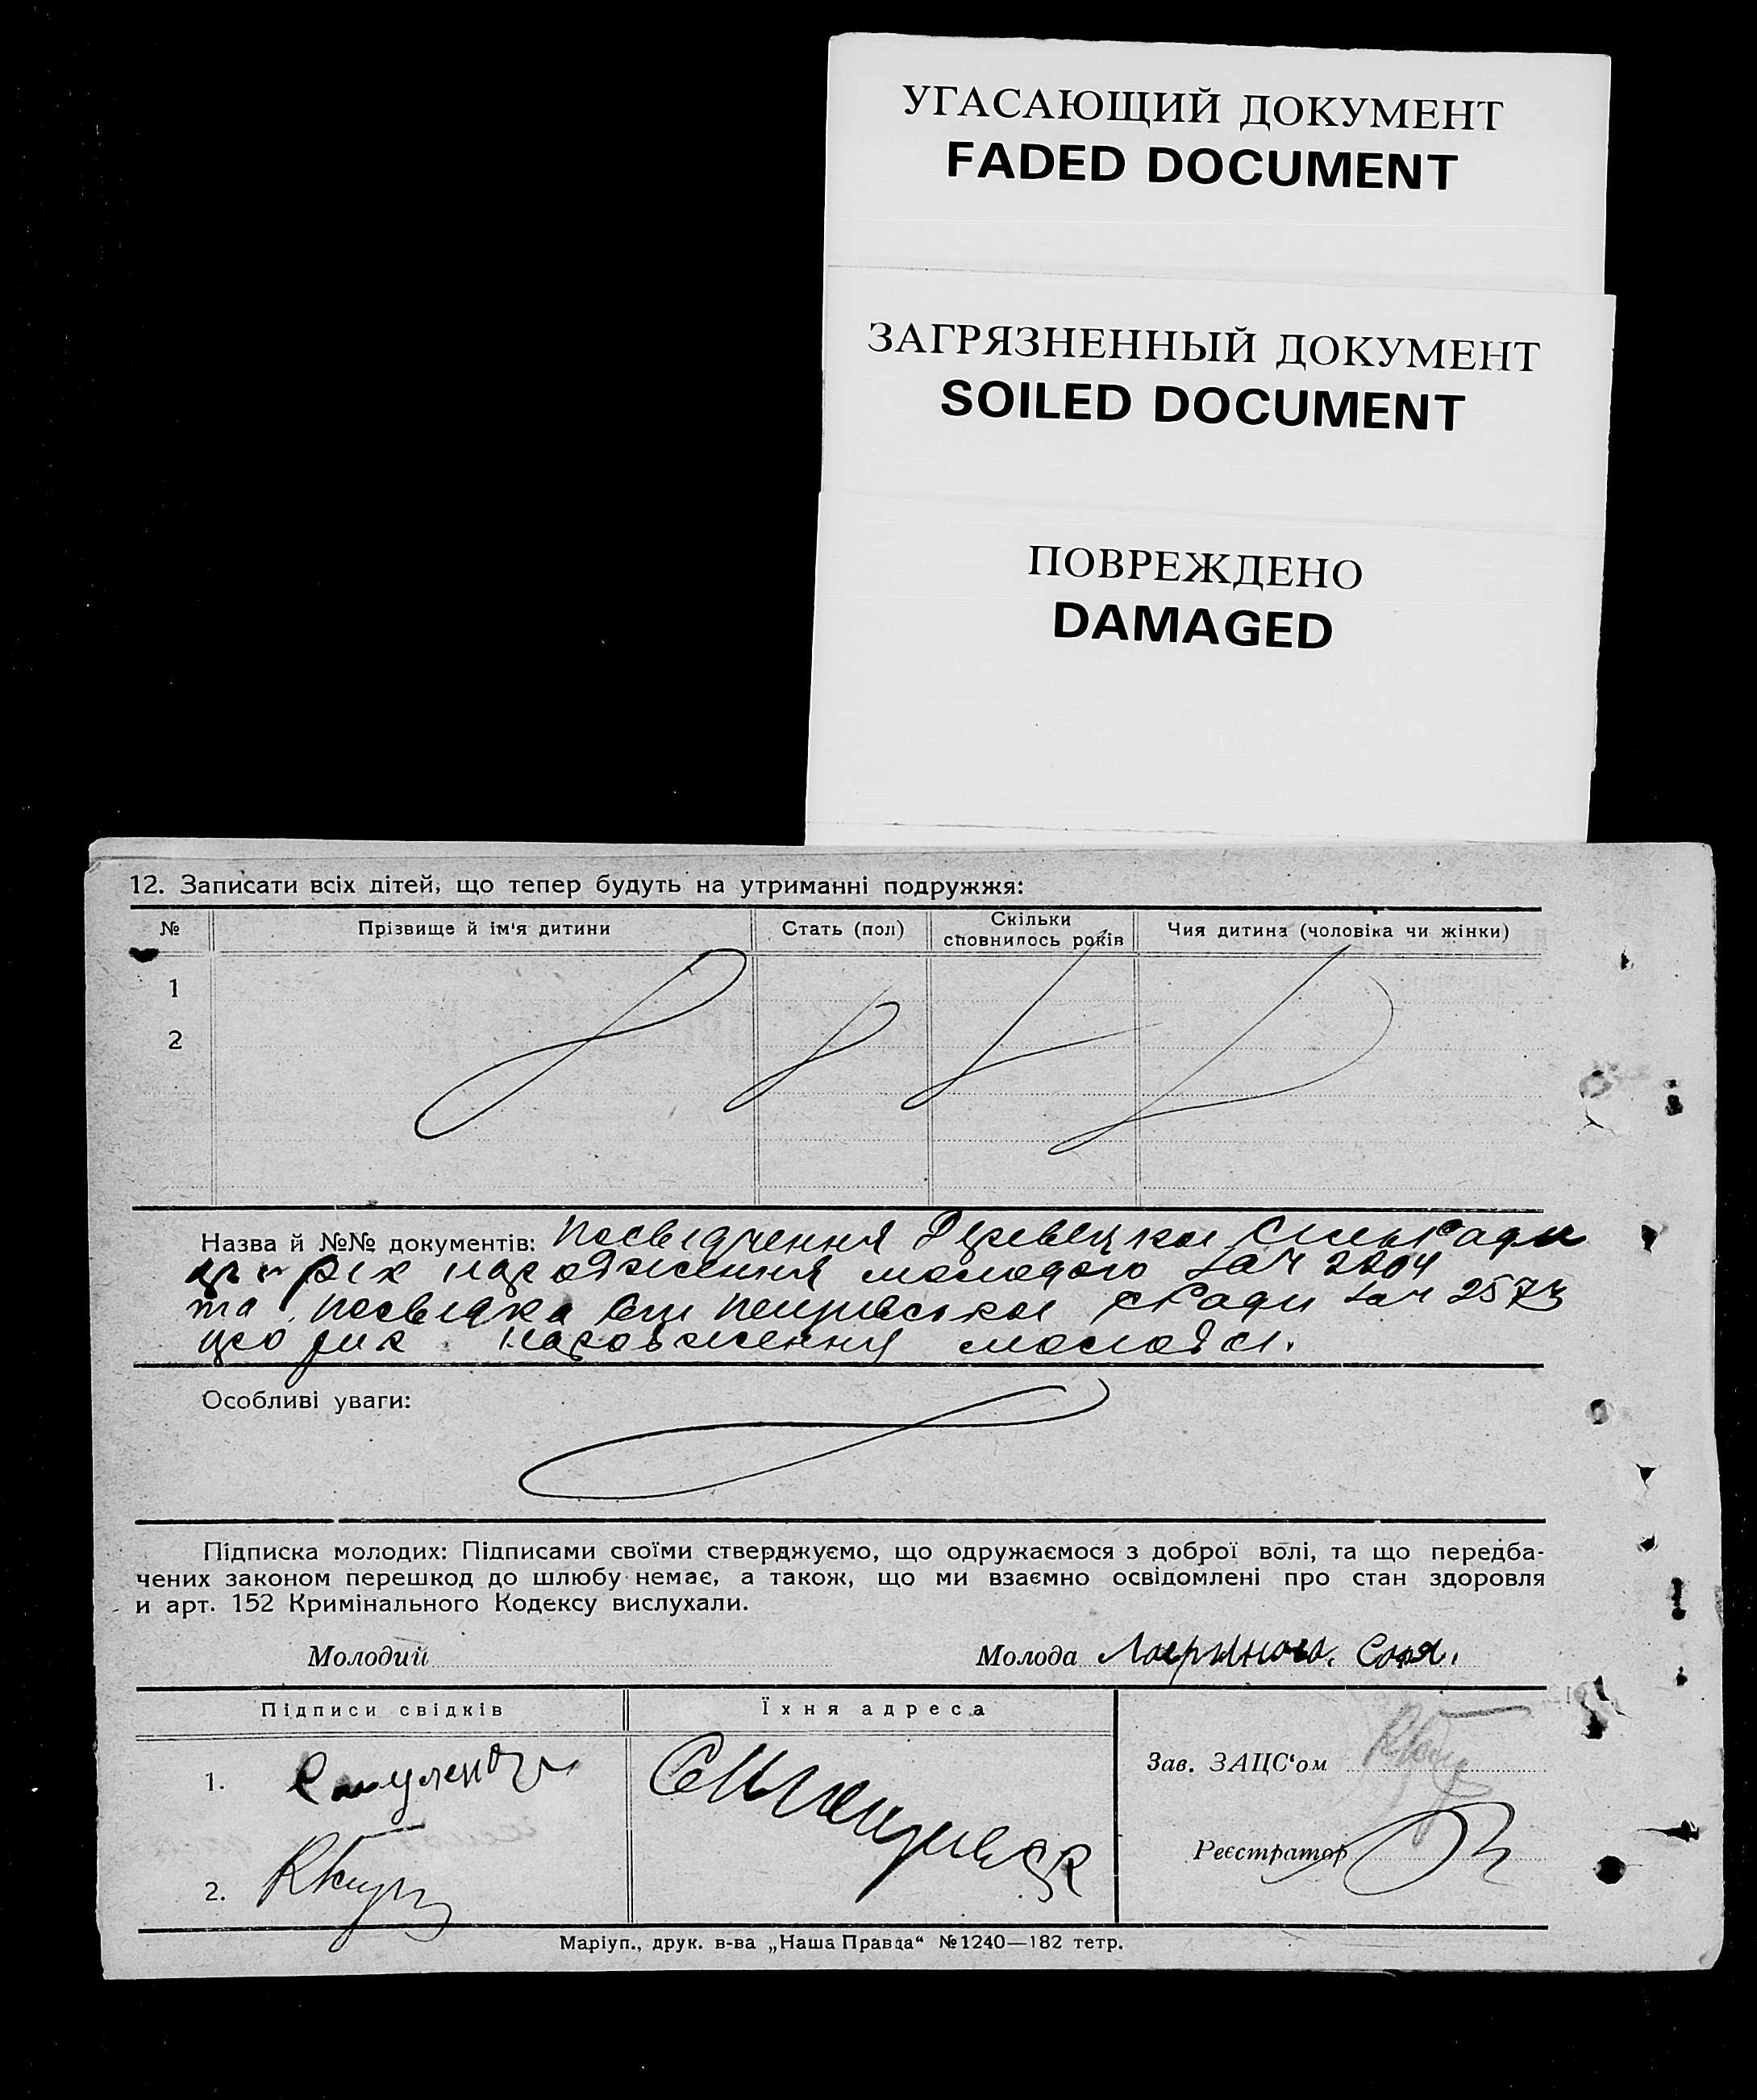 УГАСАЮЩИЙ ДОКУМЕНТ
FADED DOCUMENT
ЗАГРЯЗНЕННЫЙ ДОКУМЕНТ
SOILED DOCUMENT
ПОВРЕЖДЕНО
DAMAGED
12. Записати всіх дітей, що тепер будуть на утриманні подружжя:
№ Прізвище й ім'я дитини Стать (пол) Скільки сповнилось років Чия дитина (чоловіка чи жінки)
1
2
Назва й №№ документів: Посвідчення
рік народження молодого 2204
та посвідка ради 2573
що рик народження молодої.
Особливі уваги:
Підписка молодих: Підписами своїми стверджуємо, що одружаємося з доброї волі, та що передба-
чених законом перешкод до шлюбу немає, а також, що ми взаємно освідомлені про стан здоровля
и арт. 152 Кримінального Кодексу вислухали.
Молодий Молода Соня.
Підписи свідків Їхня адреса
Зав. ЗАЦС'ом
1.
Реєстратор
2.
Маріуп., друк. в-ва „Наша Правда“ №1240—182 тетр.